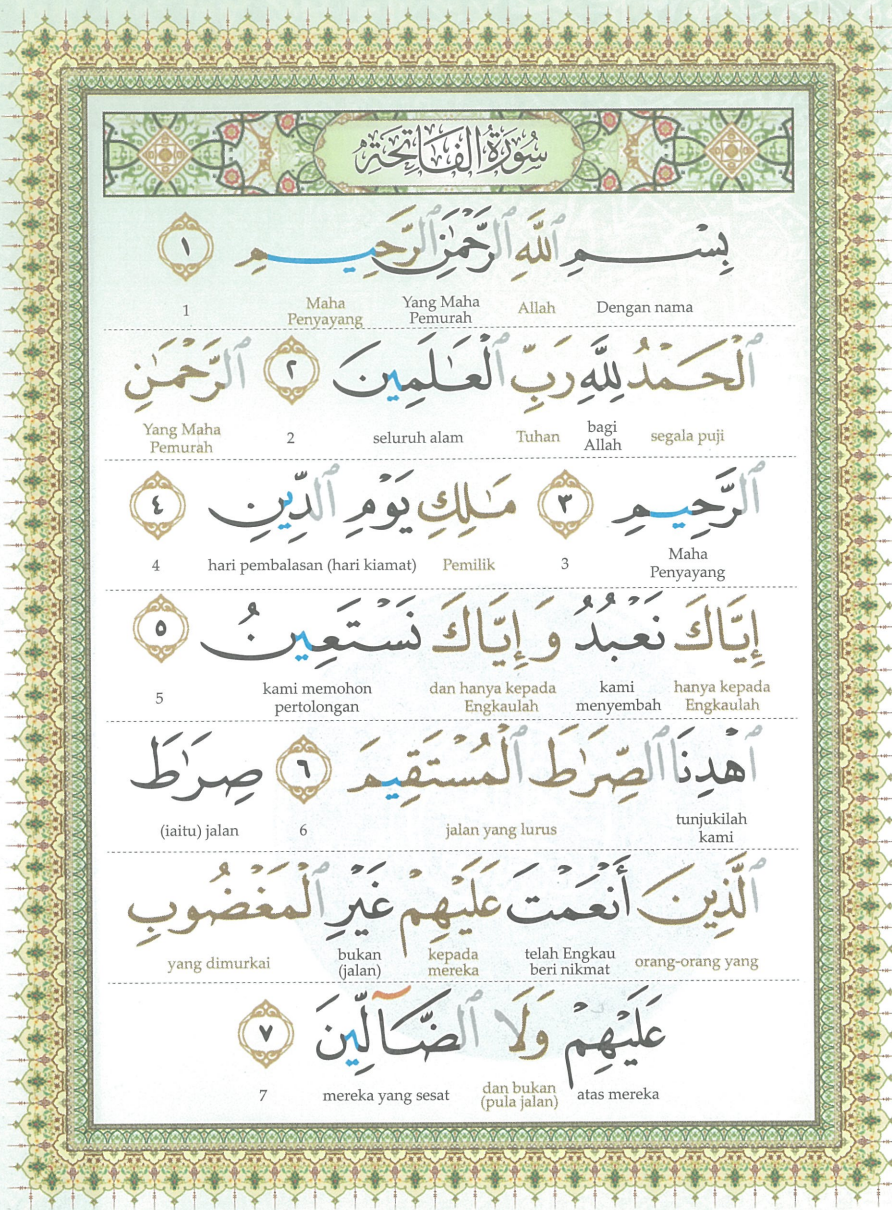 سُورَةُ الْفَاتِحَةِ
بِسْمِ ٱللَّهِ ٱلرَّحْمَٰنِ ٱلرَّحِيمِ ١
Dengan nama Allah Yang Maha Pemurah Maha Penyayang 1
ٱلْحَمْدُ لِلَّهِ رَبِّ ٱلْعَـٰلَمِينَ ٢ ٱلرَّحْمَٰنِ
segala puji bagi Allah Tuhan seluruh alam 2 Yang Maha Pemurah
ٱلرَّحِيمِ ٣ مَـٰلِكِ يَوْمِ ٱلدِّينِ ٤
Maha Penyayang 3 Pemilik hari pembalasan (hari kiamat) 4
إِيَّاكَ نَعْبُدُ وَإِيَّاكَ نَسْتَعِينُ ٥
hanya kepada Engkaulah kami menyembah dan hanya kepada Engkaulah kami memohon pertolongan 5
ٱهْدِنَا ٱلصِّرَٰطَ ٱلْمُسْتَقِيمَ ٦ صِرَٰطَ
tunjukilah kami jalan yang lurus 6 (iaitu) jalan
ٱلَّذِينَ أَنْعَمْتَ عَلَيْهِمْ غَيْرِ ٱلْمَغْضُوبِ
orang-orang yang telah Engkau beri nikmat kepada mereka bukan (jalan) yang dimurkai
عَلَيْهِمْ وَلَا ٱلضَّآلِّينَ ٧
atas mereka dan bukan (pula jalan) mereka yang sesat 7